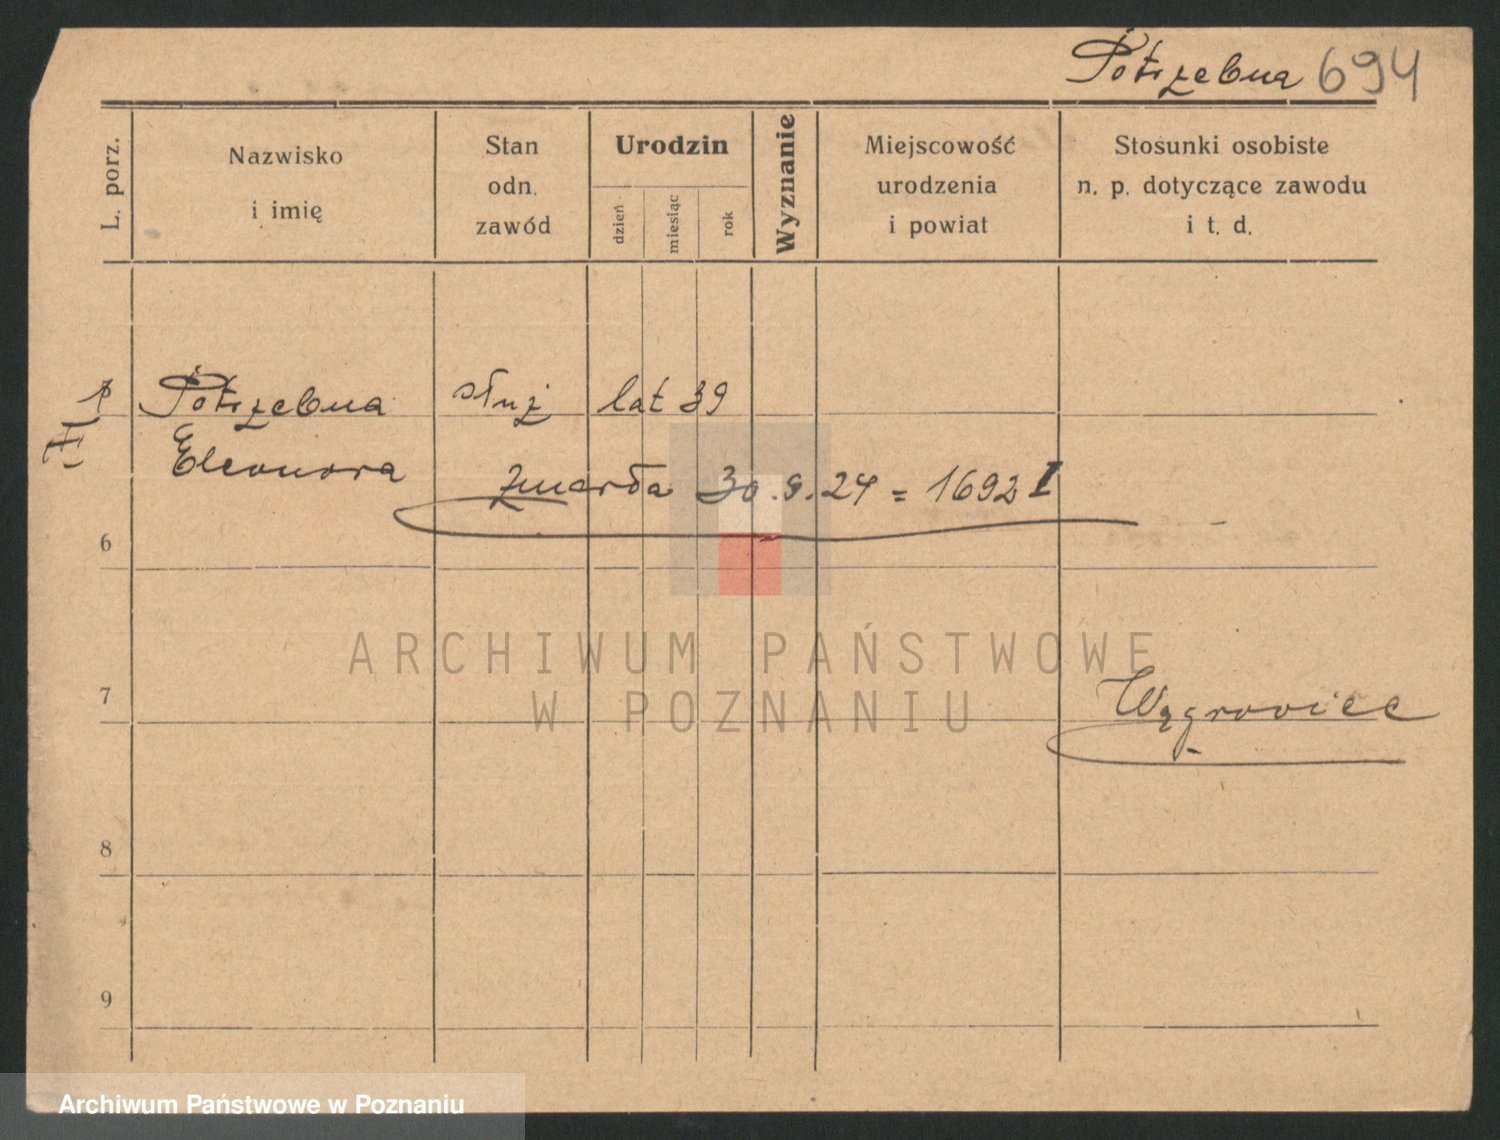 Potrzebna 694
L. porz.
Nazwisko
i imię
Stan
odn.
zawód
Urodzin
dzień
miesiąc
rok
Wyznanie
Miejscowość
urodzenia
i powiat
Stosunki osobiste
n. p. dotyczące zawodu
i t. d.
Potrzebna służ lat 39
Eleonora
zmarła 30.9.24 = 1692 I
6
7
Wągrowiec
8
9
ARCHIWUM PAŃSTWOWE
W POZNANIU
Archiwum Państwowe w Poznaniu